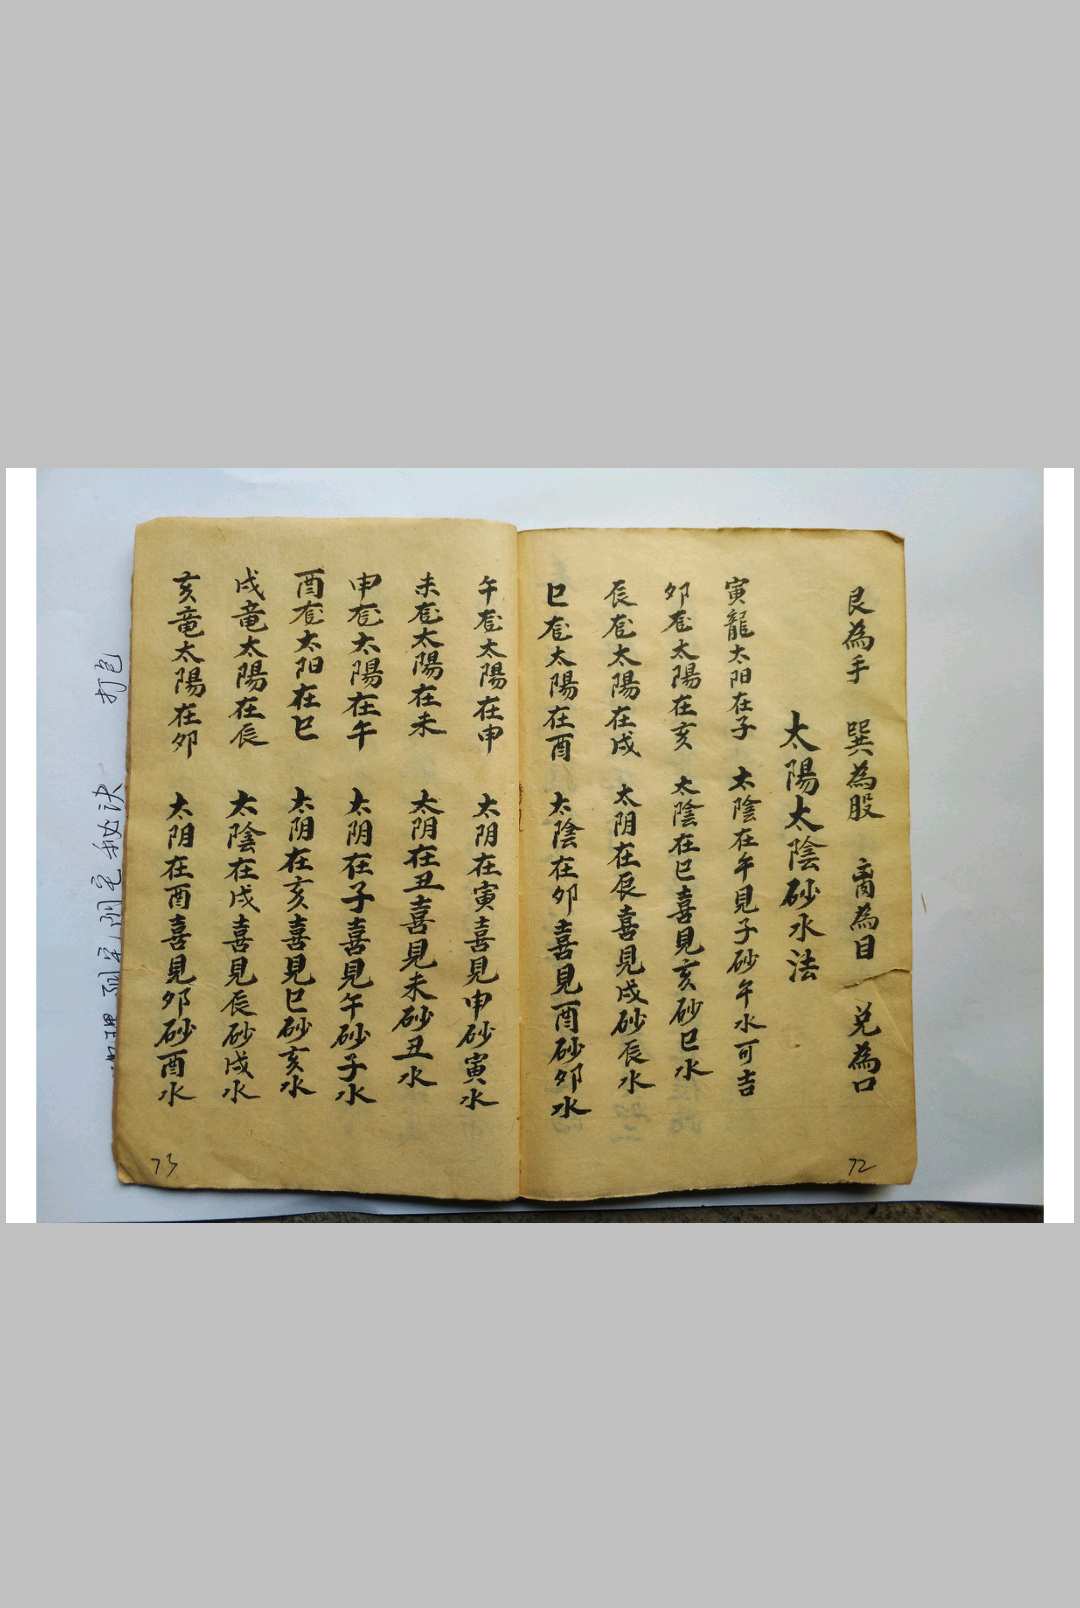 艮為手 巽為股 离為目 兑為口
太陽太陰砂水法
寅龍太阳在子 太陰在午見子砂午水可吉
卯龙太陽在亥 太陰在巳喜見亥砂巳水
辰龙太陽在戌 太阴在辰喜見戌砂辰水
巳龙太陽在酉 太陰在卯喜見酉砂卯水
72
午龙太陽在申 太阴在寅喜見申砂寅水
未龙太陽在未 太阴在丑喜見未砂丑水
申龙太陽在午 太阴在子喜見午砂子水
酉龙太阳在巳 太阴在亥喜見巳砂亥水
戌竜太陽在辰 太陰在戌喜見辰砂戌水
亥竜太陽在卯 太阴在酉喜見卯砂酉水
73
阴宅秘诀 打包